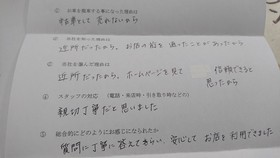 ① お車を買取する事になった理由は
料車として売れないから
② 当社を知った理由は
近所だったから、お店の前を通ったことがあったから
③ 当社を選んだ理由は
近所だったから、ホームページを見て 信頼できると
思ったから
④ スタッフの対応 (電話・来店時・引き取り時などの)
親切丁寧だと思いました
⑤ 総合的にどのようにお感じになられたか
質問に丁寧に答えてもらい、安心してお店を利用できました